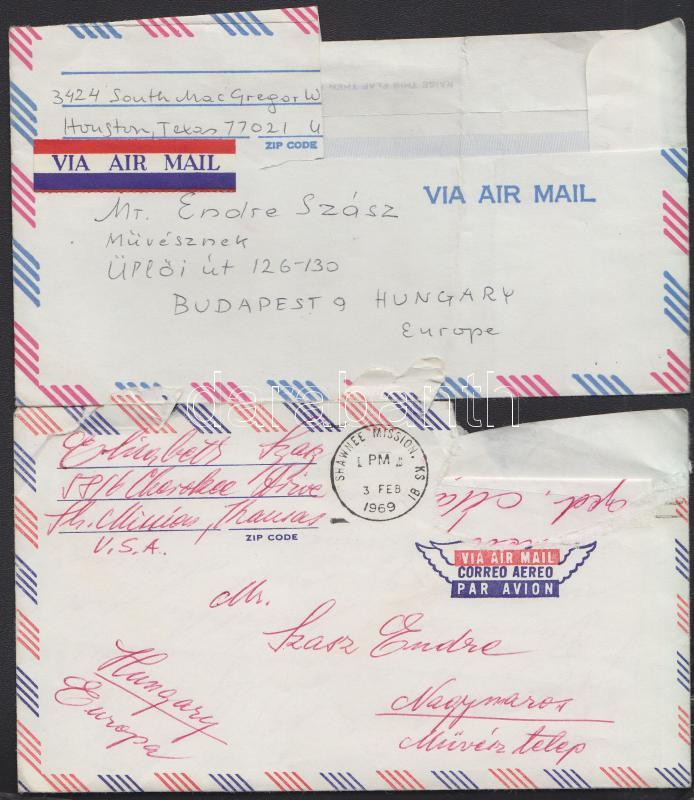 3424 South Mac Gregor W
Houston, Texas 77021 U
ZIP CODE
RAISE THIS FLAP THEN
VIA AIR MAIL
VIA AIR MAIL
Mr. Endre Szász
Müvésznek
Üllői út 126-130
BUDAPEST 9 HUNGARY
Europe
darabanth
Szasz
5816 Cherokee Drive
Sh. Mission, Kansas
U.S.A.
ZIP CODE
SHAWNEE MISSION, KS
PM
3 FEB
1969
VIA AIR MAIL
CORREO AEREO
PAR AVION
Mr.
Szasz Endre
Nagymaros
Müvész telep
Hungary
Europa